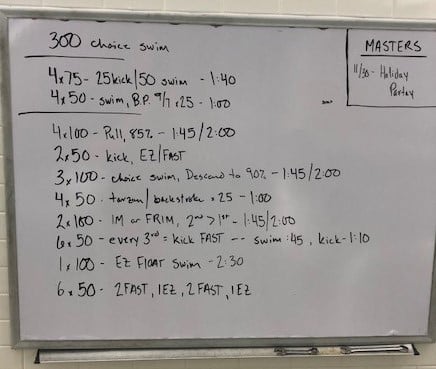 300 choice swim
4x75 - 25kick/50 swim - 1:40
4x50 - swim, B.P. 9/7 x25 - 1:00
4x100 - Pull, 85% - 1:45/2:00
2x50 - kick, EZ/FAST
3x100 - choice swim, Descend to 90% - 1:45/2:00
4x50 - tarzan/backstroke x25 - 1:00
2x100 - IM or FRIM, 2nd > 1st - 1:45/2:00
6x50 - every 3rd = kick FAST -- swim :45, kick - 1:10
1x100 - EZ FLOAT swim - 2:30
6x50 - 2FAST, 1EZ, 2FAST, 1EZ
MASTERS
11/30 - Holiday
Partay